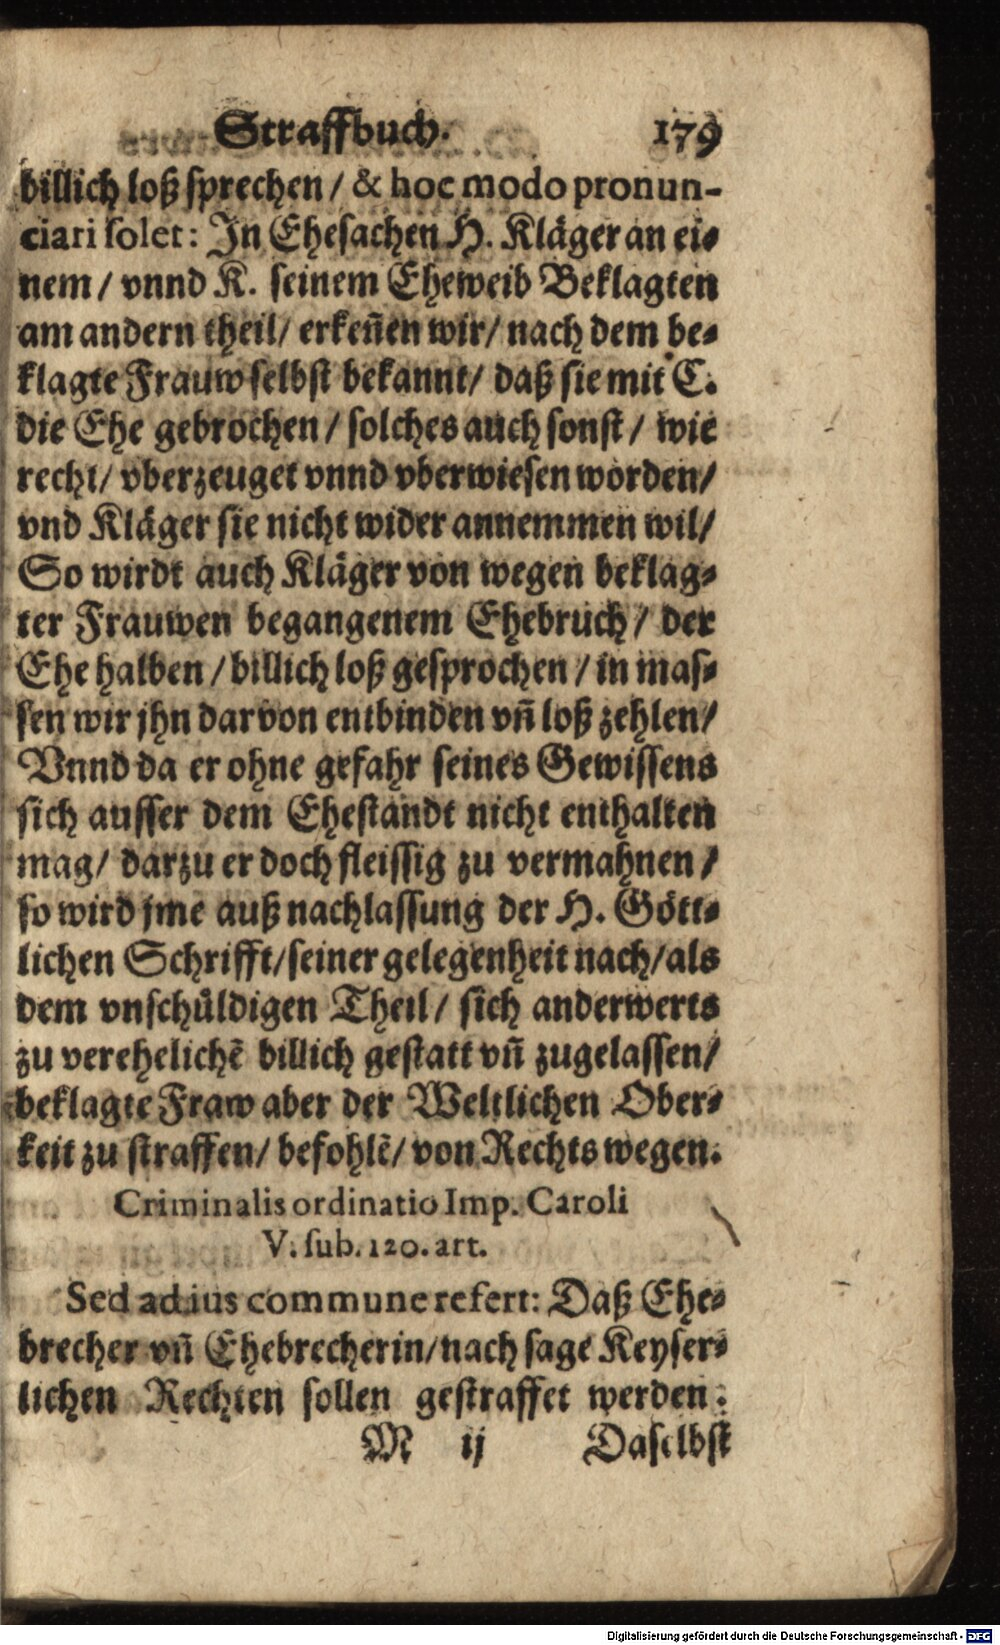 Straffbuch. 179
billich loß sprechen / & hoc modo pronun-
ciari solet: In Ehesachen H. Kläger an ei-
nem / vnnd K. seinem Eheweib Beklagten
am andern theil / erkeñen wir / nach dem be-
klagte Frauw selbst bekannt / daß sie mit C.
die Ehe gebrochen / solches auch sonst / wie
recht / vberzeuget vnnd vberwiesen worden /
vnd Kläger sie nicht wider annemmen wil /
So wirdt auch Kläger von wegen beklag-
ter Frauwen begangenem Ehebruch / der
Ehe halben / billich loß gesprochen / in mas-
sen wir jhn darvon entbinden vñ loß zehlen /
Vnnd da er ohne gefahr seines Gewissens
sich ausser dem Ehestandt nicht enthalten
mag / darzu er doch fleissig zu vermahnen /
so wird jme auß nachlassung der H. Gött-
lichen Schrifft / seiner gelegenheit nach / als
dem vnschüldigen Theil / sich anderwerts
zu verehelichẽ billich gestatt vñ zugelassen /
beklagte Fraw aber der Weltlichen Ober-
keit zu straffen / befohlẽ / von Rechts wegen.
Criminalis ordinatio Imp. Caroli
V. sub. 120. art.
Sed ad ius commune refert: Daß Ehe-
brecher vñ Ehebrecherin / nach sage Keyser-
lichen Rechten sollen gestraffet werden.
M ij Daselbst
Digitalisierung gefördert durch die Deutsche Forschungsgemeinschaft - DFG